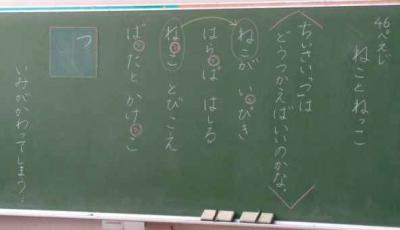 46ぺえじ
ねことねっこ
ちいさいっは
どうつかえばいいのかな。
ねこが いっぴき
はらっぱ はしる
ねっこ とびこえ
ばったと かけっこ
っ
いみがかわってしまう…